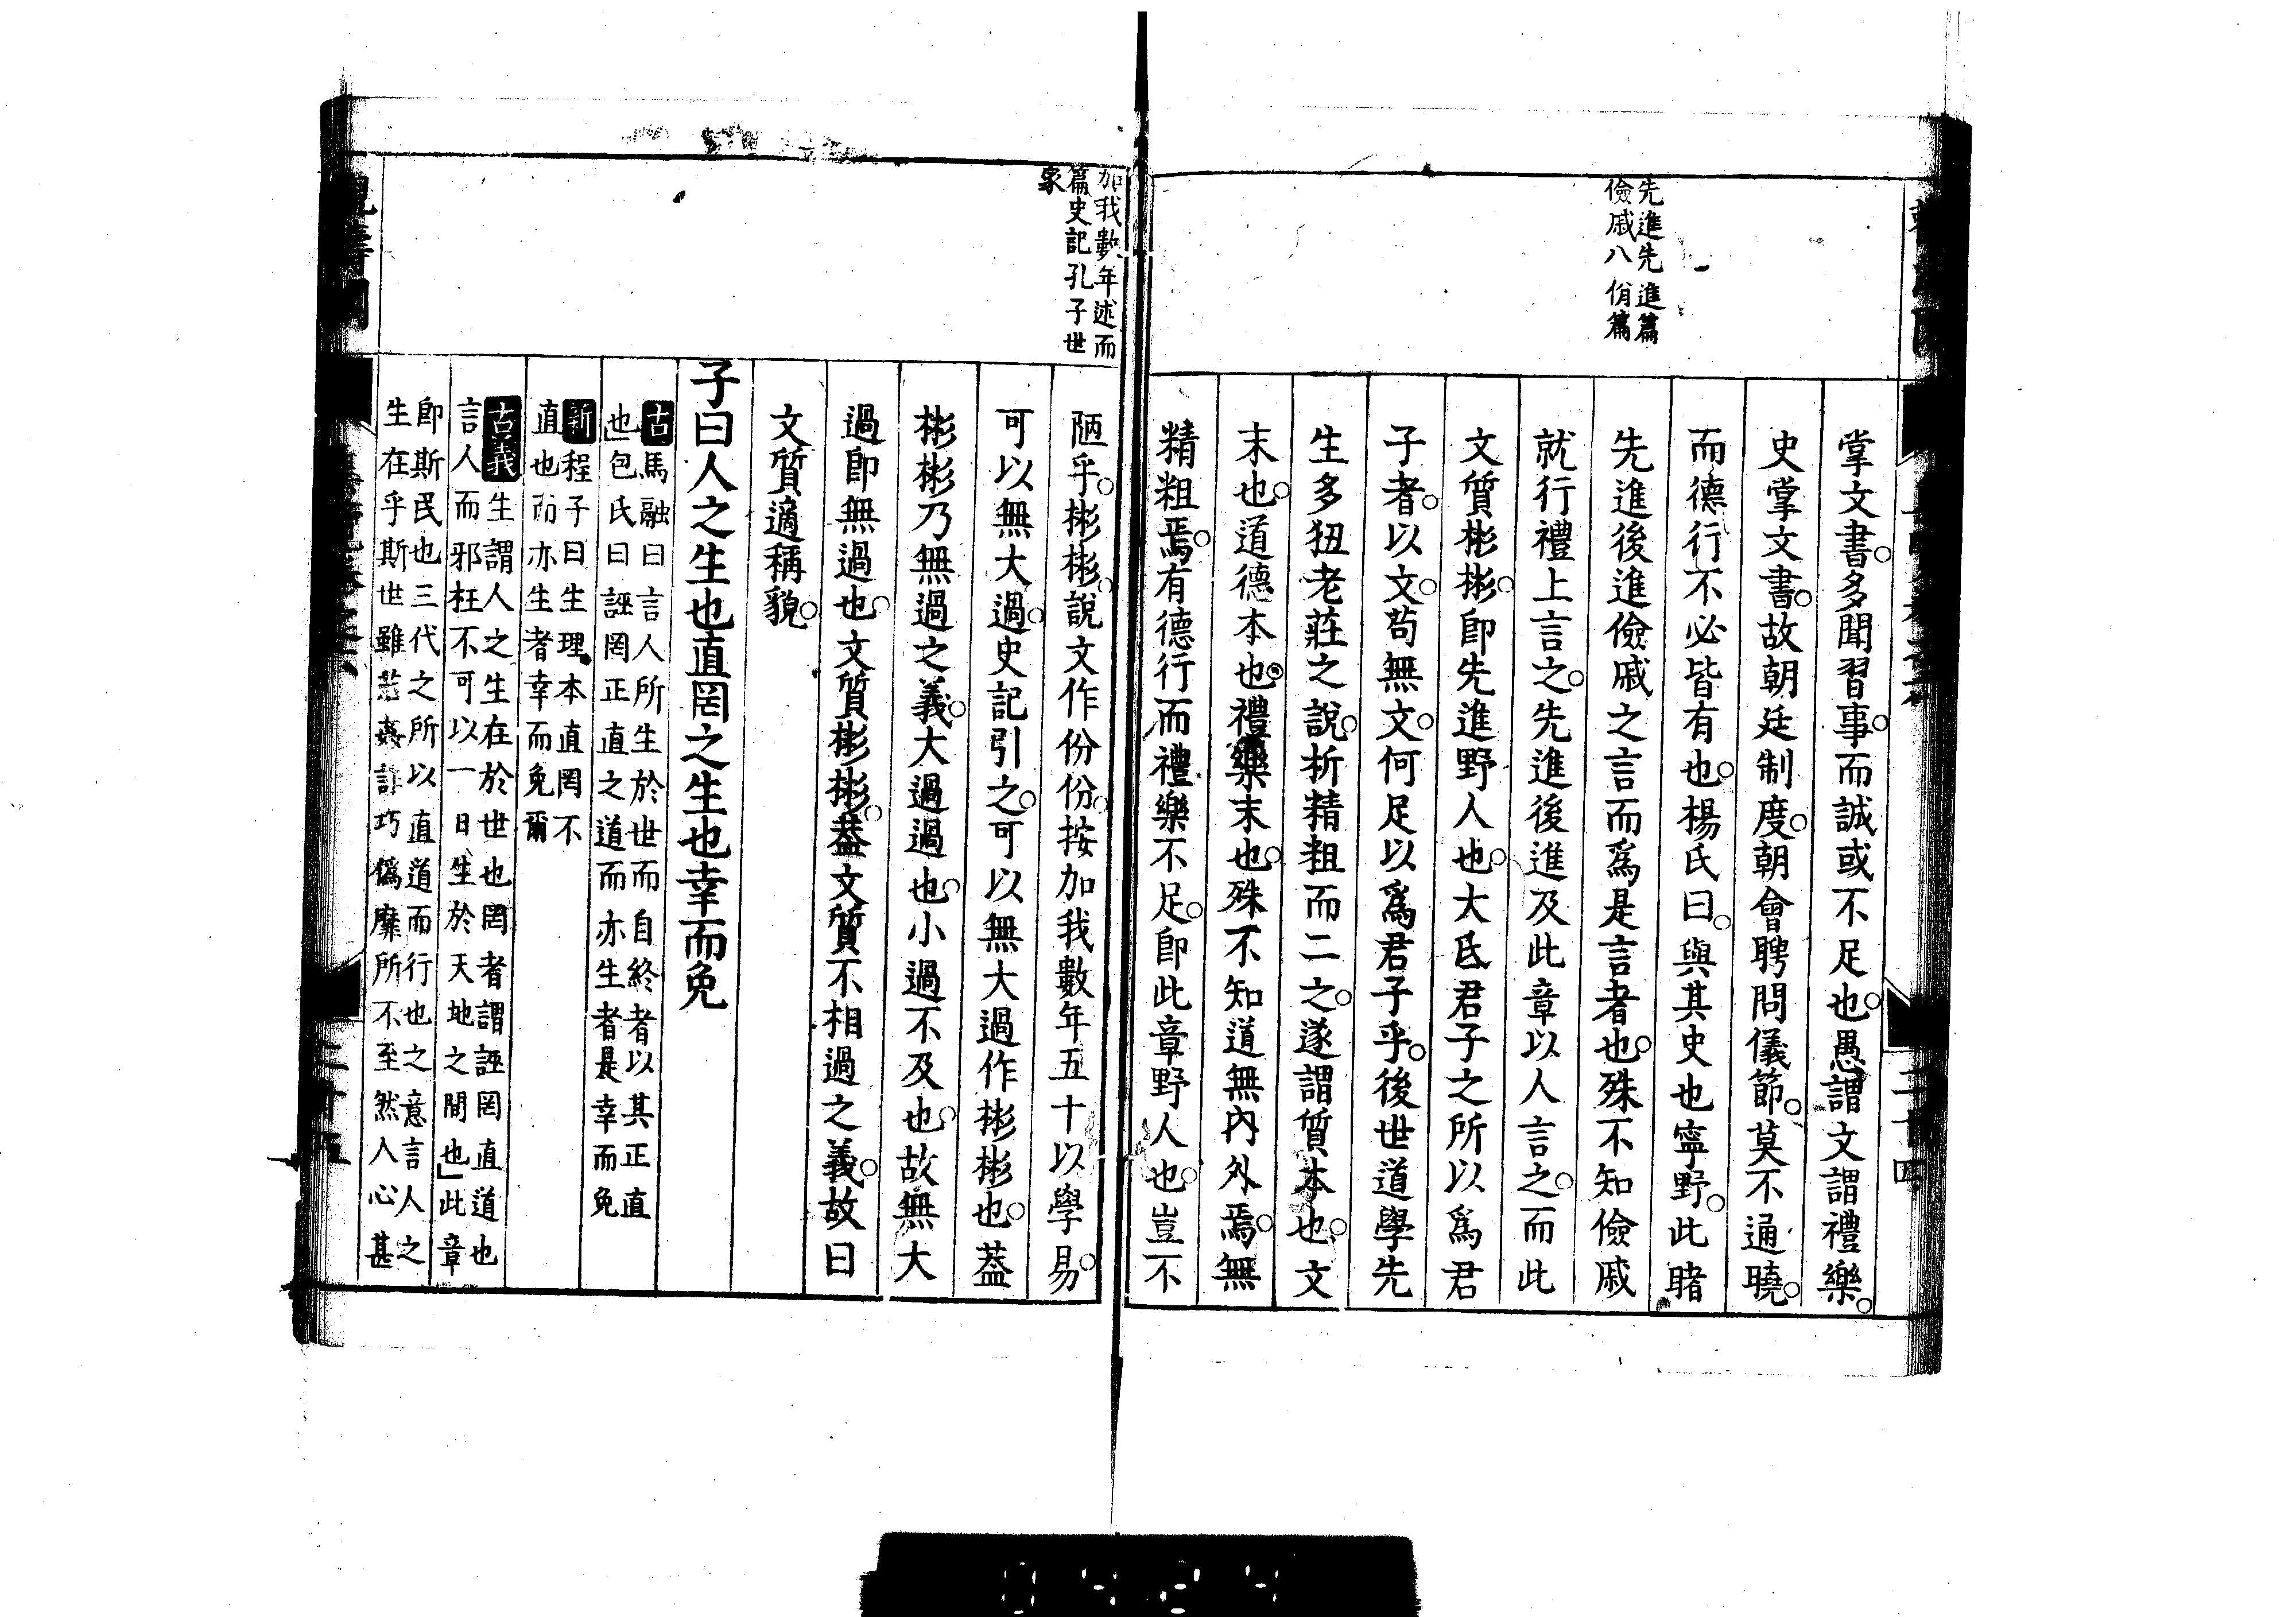 先進先進篇
儉戚八佾篇
掌文書。多聞習事。而誠或不足也。愚謂文謂禮樂。
史掌文書。故朝廷制度。朝會聘問儀節。莫不通曉。
而德行不必皆有也。楊氏曰。與其史也寧野。此睹
先進後進儉戚之言而爲是言者也。殊不知儉戚
就行禮上言之。先進後進及此章以人言之。而此
文質彬彬。卽先進野人也。大氐君子之所以爲君
子者。以文。苟無文。何足以爲君子乎。後世道學先
生多狃老莊之說。析精粗而二之。遂謂質本也。文
末也。道德本也。禮樂末也。殊不知道無內外焉。無
精粗焉。有德行而禮樂不足。卽此章野人也。豈不
二十四
加我數年述而
篇史記孔子世
家
陋乎。彬彬。說文作份份。按加我數年五十以學易。
可以無大過。史記引之。可以無大過作彬彬也。葢
彬彬乃無過之義。大過過也。小過不及也。故無大
過卽無過也。文質彬彬。葢文質不相過之義。故曰
文質適稱貌。
子曰人之生也直罔之生也幸而免
古馬融曰言人所生於世而自終者以其正直
也」包氏曰誣罔正直之道而亦生者是幸而免
新程子曰生理本直罔不
直也而亦生者幸而免爾
古義生謂人之生在於世也罔者謂誣罔直道也
言人而邪枉不可以一日生於天地之間也」此章
卽斯民也三代之所以直道而行也之意言人之
生在乎斯世雖姦詐巧僞靡所不至然人心甚
二十五